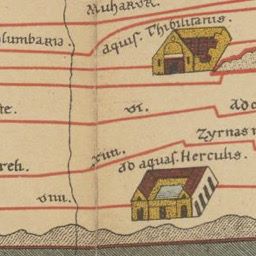 Muharur.
olumbaria.
aquis. Thibilitanis.
te.
vi.
ad o
Zyrnas
reli.
xxiii.
ad aquas. Herculis.
viiii.